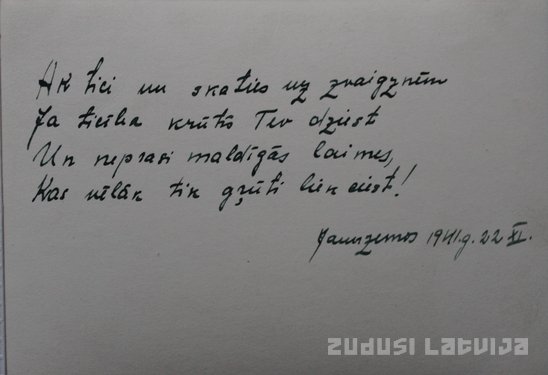 Ak tici un skaties uz zvaigznēm
Ja ticība krūtīs Tev dziest
Un neprasi maldīgās laimes,
Kas vēlāk tik grūti liek ciest!
Jaunzemos 1941.g. 22 XI.
ZUDUSI LATVIJA